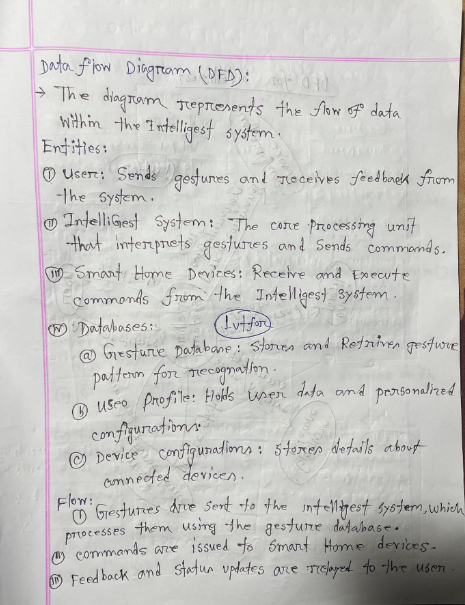 Data flow Diagram (DFD):
→ The diagram represents the flow of data
within the Intelligest system.
Entities:
(i) User: Sends gestures and receives feedback from
the system.
(ii) IntelliGest System: The core processing unit
that interprets gestures and Sends commands.
(iii) Smart Home Devices: Receive and Execute
commands from the Intelligest system.
(iv) Databases: Lutfor
(a) Gesture Database: Stores and Retrives gesture
pattern for recognation.
(b) User Profile: Holds user data and personalized
configurations.
(c) Device configurations: stores details about
connected devices.
Flow:
(i) Gestures are sent to the intelligest system, which
processes them using the gesture database.
(ii) commands are issued to Smart Home devices.
(iii) Feedback and status updates are relayed to the user.